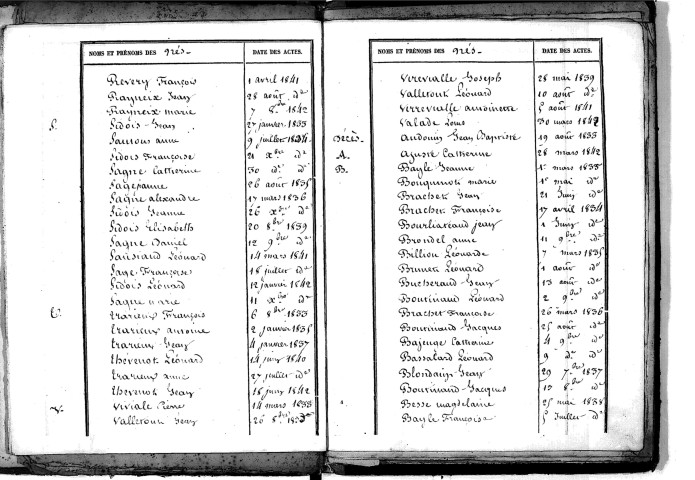 NOMS ET PRÉNOMS DES Nés. DATE DES ACTES.
Revery François 1 avril 1841
Rayneix Jean 28 août dº
Rayneix marie 7 8bre 1842
S. Sidois Jean 27 janvier 1833
Santous anne 9 juillet 1834
Sidois Françoise 21 xbre dº
Sagne Catherine 30 dº dº
Sage Jeanne 26 août 1835
Sagne alexandre 17 mars 1836
Sidois Jeanne 26 xbre dº
Sidois Elisabeth 20 8bre 1839
Sagne Daniel 12 9bre dº
Léonard 14 mars 1841
Sage Françoise 18 juillet dº
Sidois Léonard 12 janvier 1842
Sagne marie 11 xbre dº
T. trarieux François 6 8bre 1833
trarieux antoine 2 janvier 1835
trarieux Jean 4 janvier 1837
thevenot Léonard 14 juin 1840
trarieux anne 27 juillet dº
thevenot Jean 18 juin 1842
V. Viviale Pierre 14 mars 1833
Valletout Jean 26 8bre
NOMS ET PRÉNOMS DES Nés. DATE DES ACTES.
Virevialle Joseph 28 mai 1839
Valletout Léonard 10 août dº
Virevialle antoinette 5 août 1841
Valade Louis 30 mars 1842
Décès. Audouin Jean Baptiste 19 août 1833
A. Ajusté Catherine 28 mars 1842
B. Bayle Jeanne 1er mars 1833
Bouquinoti marie 1er mai dº
Brachet Jean 21 juin dº
Brachet Françoise 17 avril 1834
Bourliataud Jean 1 juin dº
Brondel anne 11 9bre dº
Billiou Léonarde 7 mars 1835
Brunen Léonard 1 août dº
Jean 13 août dº
Boutinaud Léonard 2 9bre dº
Brachet Francoise 26 mars 1836
Boutinaud Jacques 25 août dº
Bajenge Catherine 4 9bre dº
Bassalard Léonard 9 dº dº
Blondain Jean 29 7bre 1837
Boutinaud Jacques 13 8bre dº
Besse magdelaine 25 mai 1838
Bayle Françoise 5 juillet dº